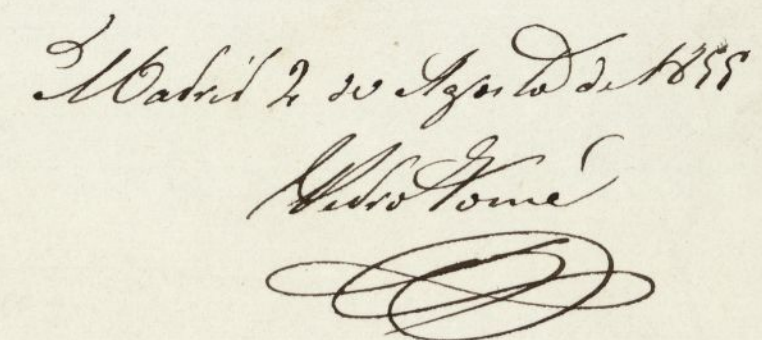 Madrid 2 de Agosto de 1855
Pedro Tomé